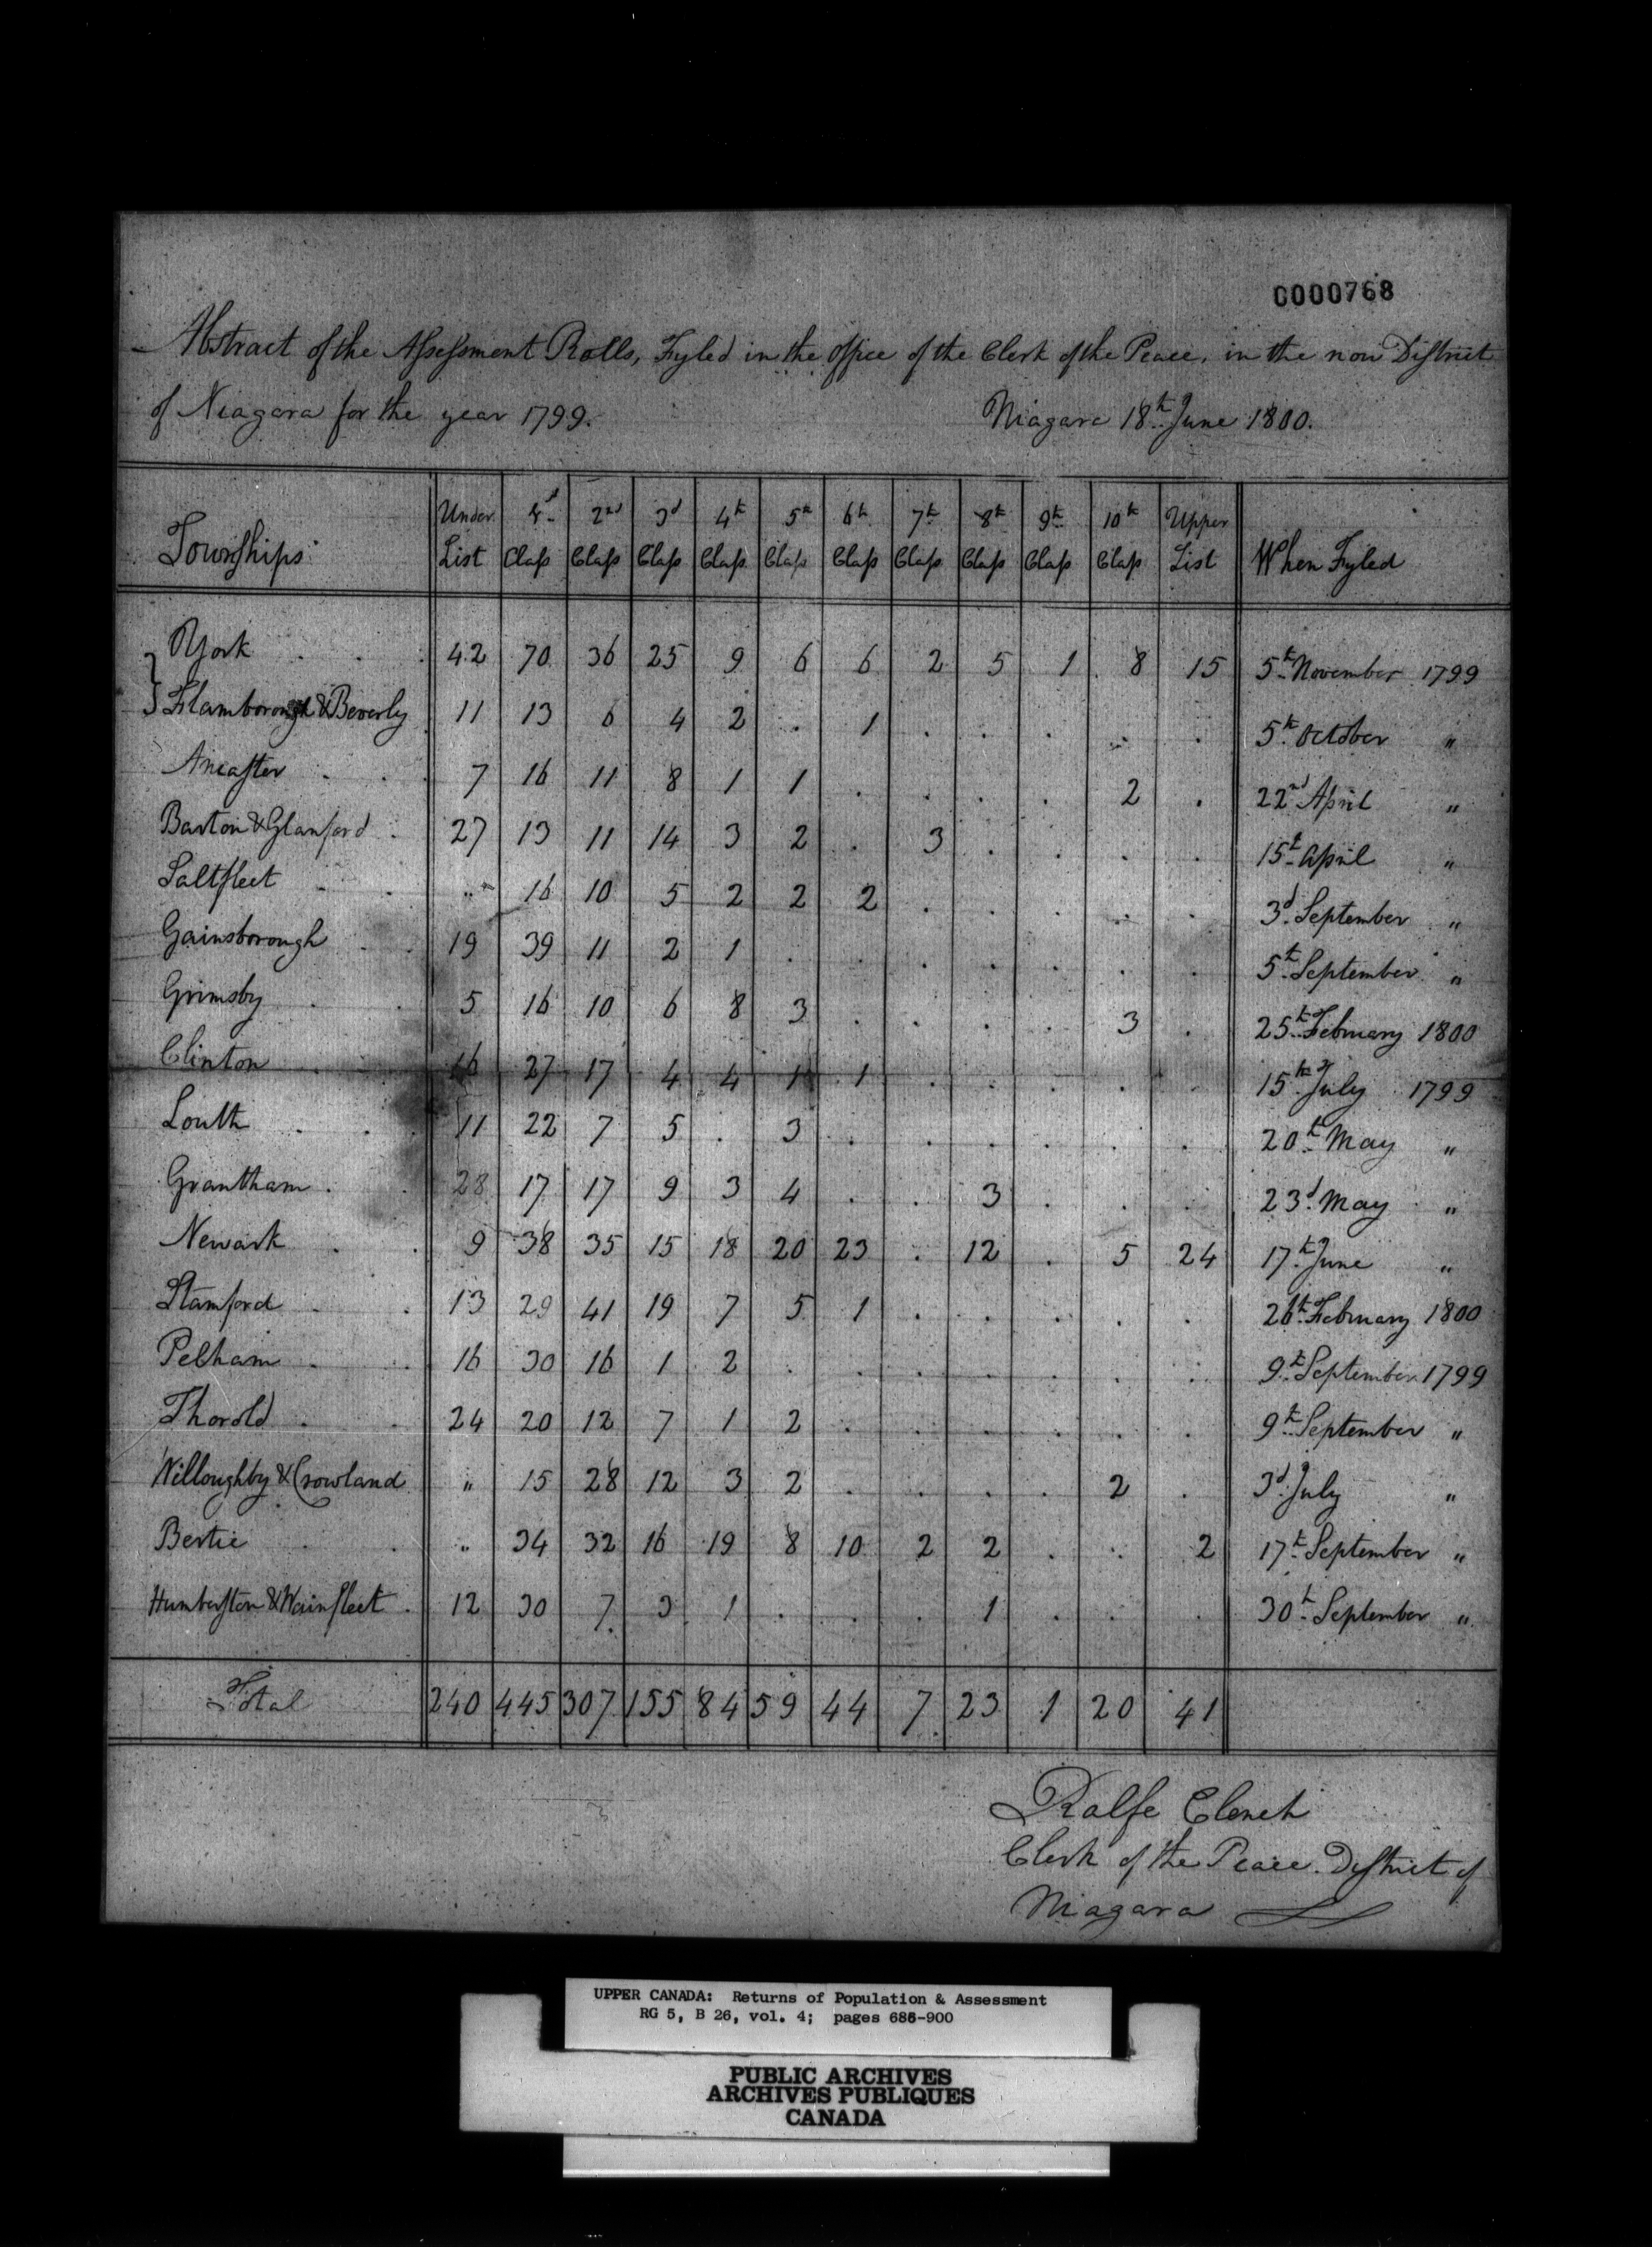 0000768
Abstract of the Assessment Rolls, Fyled in the office of the Clerk of the Peace, in the now District
of Niagara for the year 1799. Niagara 18th June 1800.
Townships Under List 1st Class 2nd Class 3d Class 4th Class 5th Class 6th Class 7th Class 8th Class 9th Class 10th Class Upper List When Fyled
York . . . 42 70 36 25 9 6 6 2 5 1 8 15 5th November 1799
Flamborough & Beverly 11 13 6 4 2 . 1 . . . . . 5th October "
Ancaster . . . 7 16 11 8 1 1 . . . . 2 . 22nd April "
Barton & Glanford . 27 13 11 14 3 2 . 3 . . . . 15th April "
Saltfleet . . " 16 10 5 2 2 2 . . . . . 3d September "
Gainsborough . . 19 39 11 2 1 . . . . . . . 5th September "
Grimsby . . 5 16 10 6 8 3 . . . . 3 . 25th February 1800
Clinton . . 16 27 17 4 4 1 1 . . . . . 15th July 1799
Louth . . . 11 22 7 5 . 3 . . . . . . 20th May "
Grantham . . 28 17 17 9 3 4 . . 3 . . . 23d May "
Newark . . 9 38 35 15 18 20 23 . 12 . 5 24 17th June "
Stamford . . 13 29 41 19 7 5 1 . . . . . 26th February 1800
Pelham . . 16 30 16 1 2 . . . . . . . 9th September 1799
Thorold . . 24 20 12 7 1 2 . . . . . . 9th September "
Willoughby & Crowland " 15 28 12 3 2 . . . . 2 . 3d July "
Bertie . . " 34 32 16 19 8 10 2 2 . . 2 17th September "
Humberston & Wainfleet . 12 30 7 3 1 . . . 1 . . . 30th September "
Total 240 445 307 155 84 59 44 7 23 1 20 41
Ralfe Clench
Clerk of the Peace District of
Niagara
UPPER CANADA: Returns of Population & Assessment
RG 5, B 26, vol. 4; pages 686-900
PUBLIC ARCHIVES
ARCHIVES PUBLIQUES
CANADA